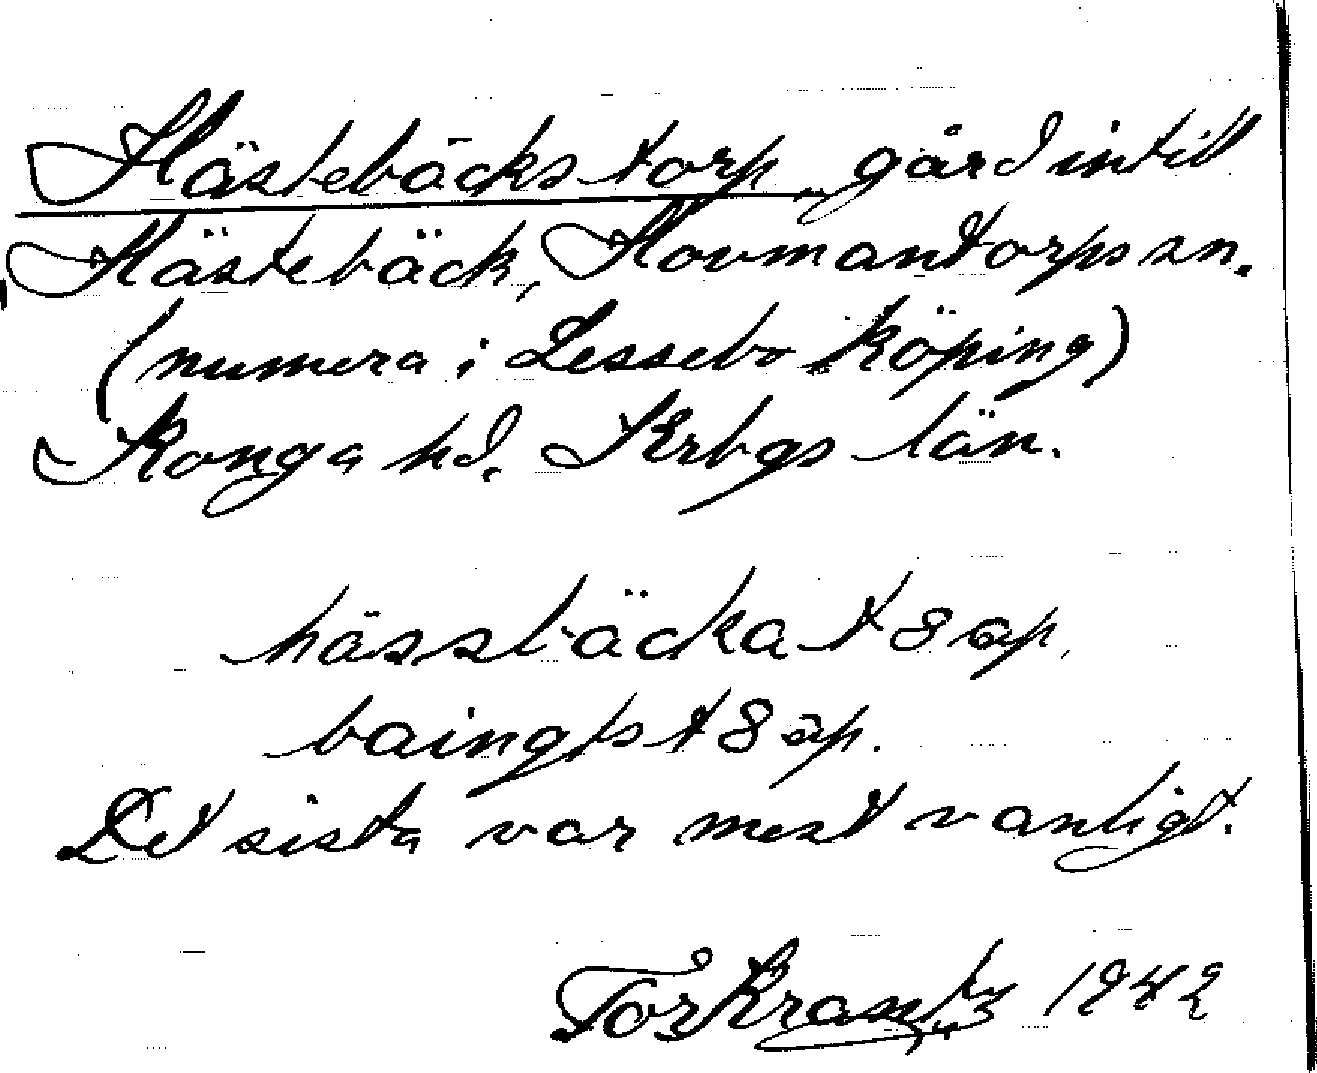 Hästebäckstorp, gård intill
Hästebäck, Hovmantorps sn.
(numera i Lessebo köping)
Konga hd. Krbgs län.
hässbäckat8ap,
baingpst8ap.
Det sista var mest vanligt.
Tor Krantz 1942